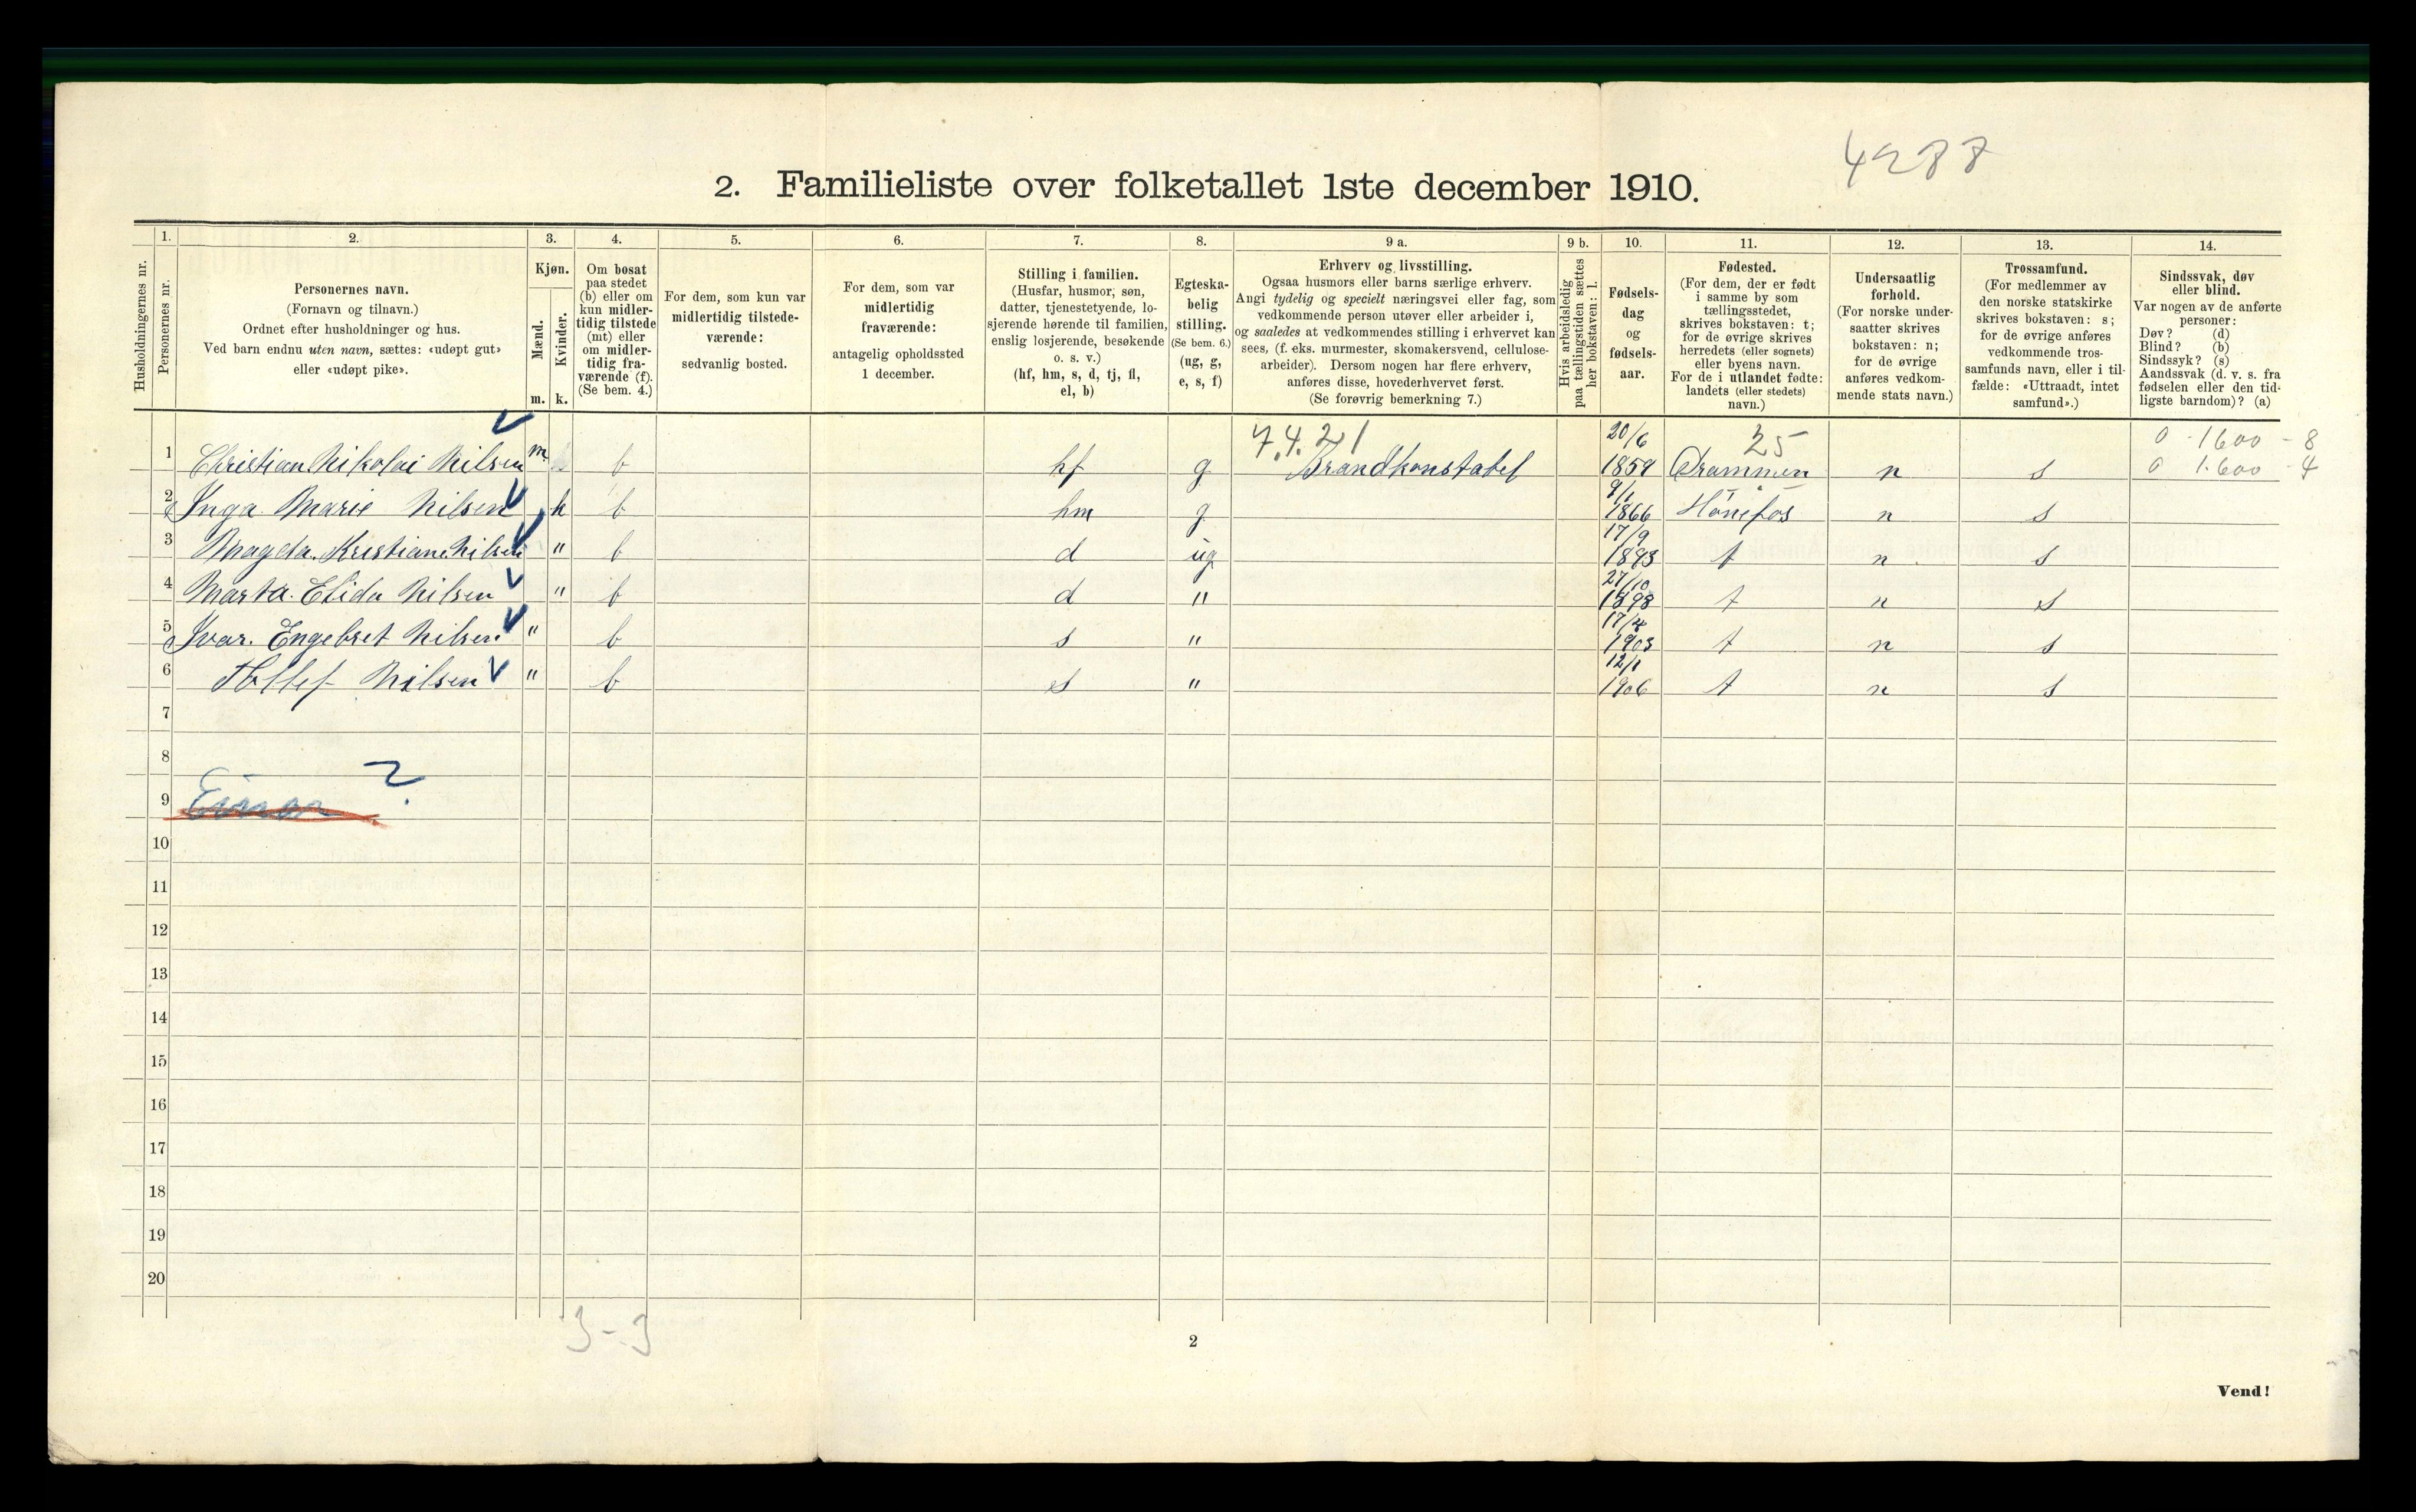 4288
2. Familieliste over folketallet 1ste december 1910.
Husholdningernes nr.
1. Personernes nr.
2. Personernes navn. (Fornavn og tilnavn.) Ordnet efter husholdninger og hus. Ved barn endnu uten navn, sættes: «udøpt gut» eller «udøpt pike».
3. Kjøn. Mænd. m. Kvinder. k.
4. Om bosat paa stedet (b) eller om kun midlertidig tilstede (mt) eller om midlertidig fraværende (f). (Se bem. 4.)
5. For dem, som kun var midlertidig tilstedeværende: sedvanlig bosted.
6. For dem, som var midlertidig fraværende: antagelig opholdssted 1 december.
7. Stilling i familien. (Husfar, husmor, søn, datter, tjenestetyende, losjerende hørende til familien, enslig losjerende, besøkende o. s. v.) (hf, hm, s, d, tj, fl, el, b)
8. Egteskabelig stilling. (Se bem. 6.) (ug, g, e, s, f)
9 a. Erhverv og livsstilling. Ogsaa husmors eller barns særlige erhverv. Angi tydelig og specielt næringsvei eller fag, som vedkommende person utøver eller arbeider i, og saaledes at vedkommendes stilling i erhvervet kan sees, (f. eks. murmester, skomakersvend, cellulosearbeider). Dersom nogen har flere erhverv, anføres disse, hovederhvervet først. (Se forøvrig bemerkning 7.)
9 b. Hvis arbeidsledig paa tællingstiden sættes her bokstaven: l.
10. Fødselsdag og fødselsaar.
11. Fødested. (For dem, der er født i samme by som tællingsstedet, skrives bokstaven: t; for de øvrige skrives herredets (eller sognets) eller byens navn. For de i utlandet fødte: landets (eller stedets) navn.)
12. Undersaatlig forhold. (For norske undersaatter skrives bokstaven: n; for de øvrige anføres vedkommende stats navn.)
13. Trossamfund. (For medlemmer av den norske statskirke skrives bokstaven: s; for de øvrige anføres vedkommende trossamfunds navn, eller i tilfælde: «Uttraadt, intet samfund».)
14. Sindssvak, døv eller blind. Var nogen av de anførte personer: Døv? (d) Blind? (b) Sindssyk? (s) Aandssvak (d. v. s. fra fødselen eller den tidligste barndom)? (a)
7.4.21 25 0 - 1600 - 8
1 Christian Nikolai Nilsen m b hf g Brandkonstabel 20/6 1859 Drammen n s 0 1.600 - 4
2 Inga Marie Nilsen k b hm g 9/1 1866 Hönefos n s
3 Magda. Kristiane Nilsen " b d ug 17/9 1893 t n s
4 Marta. Elida Nilsen " b d " 27/10 1898 t n s
5 Ivar. Engebret Nilsen " b s " 17/4 1903 t n s
6 Tollef Nilsen " b s " 12/1 1906 t n s
7
8
9 Einar ?
10
11
12
13
14
15
16
17
18
19
20
3-3
2
Vend!